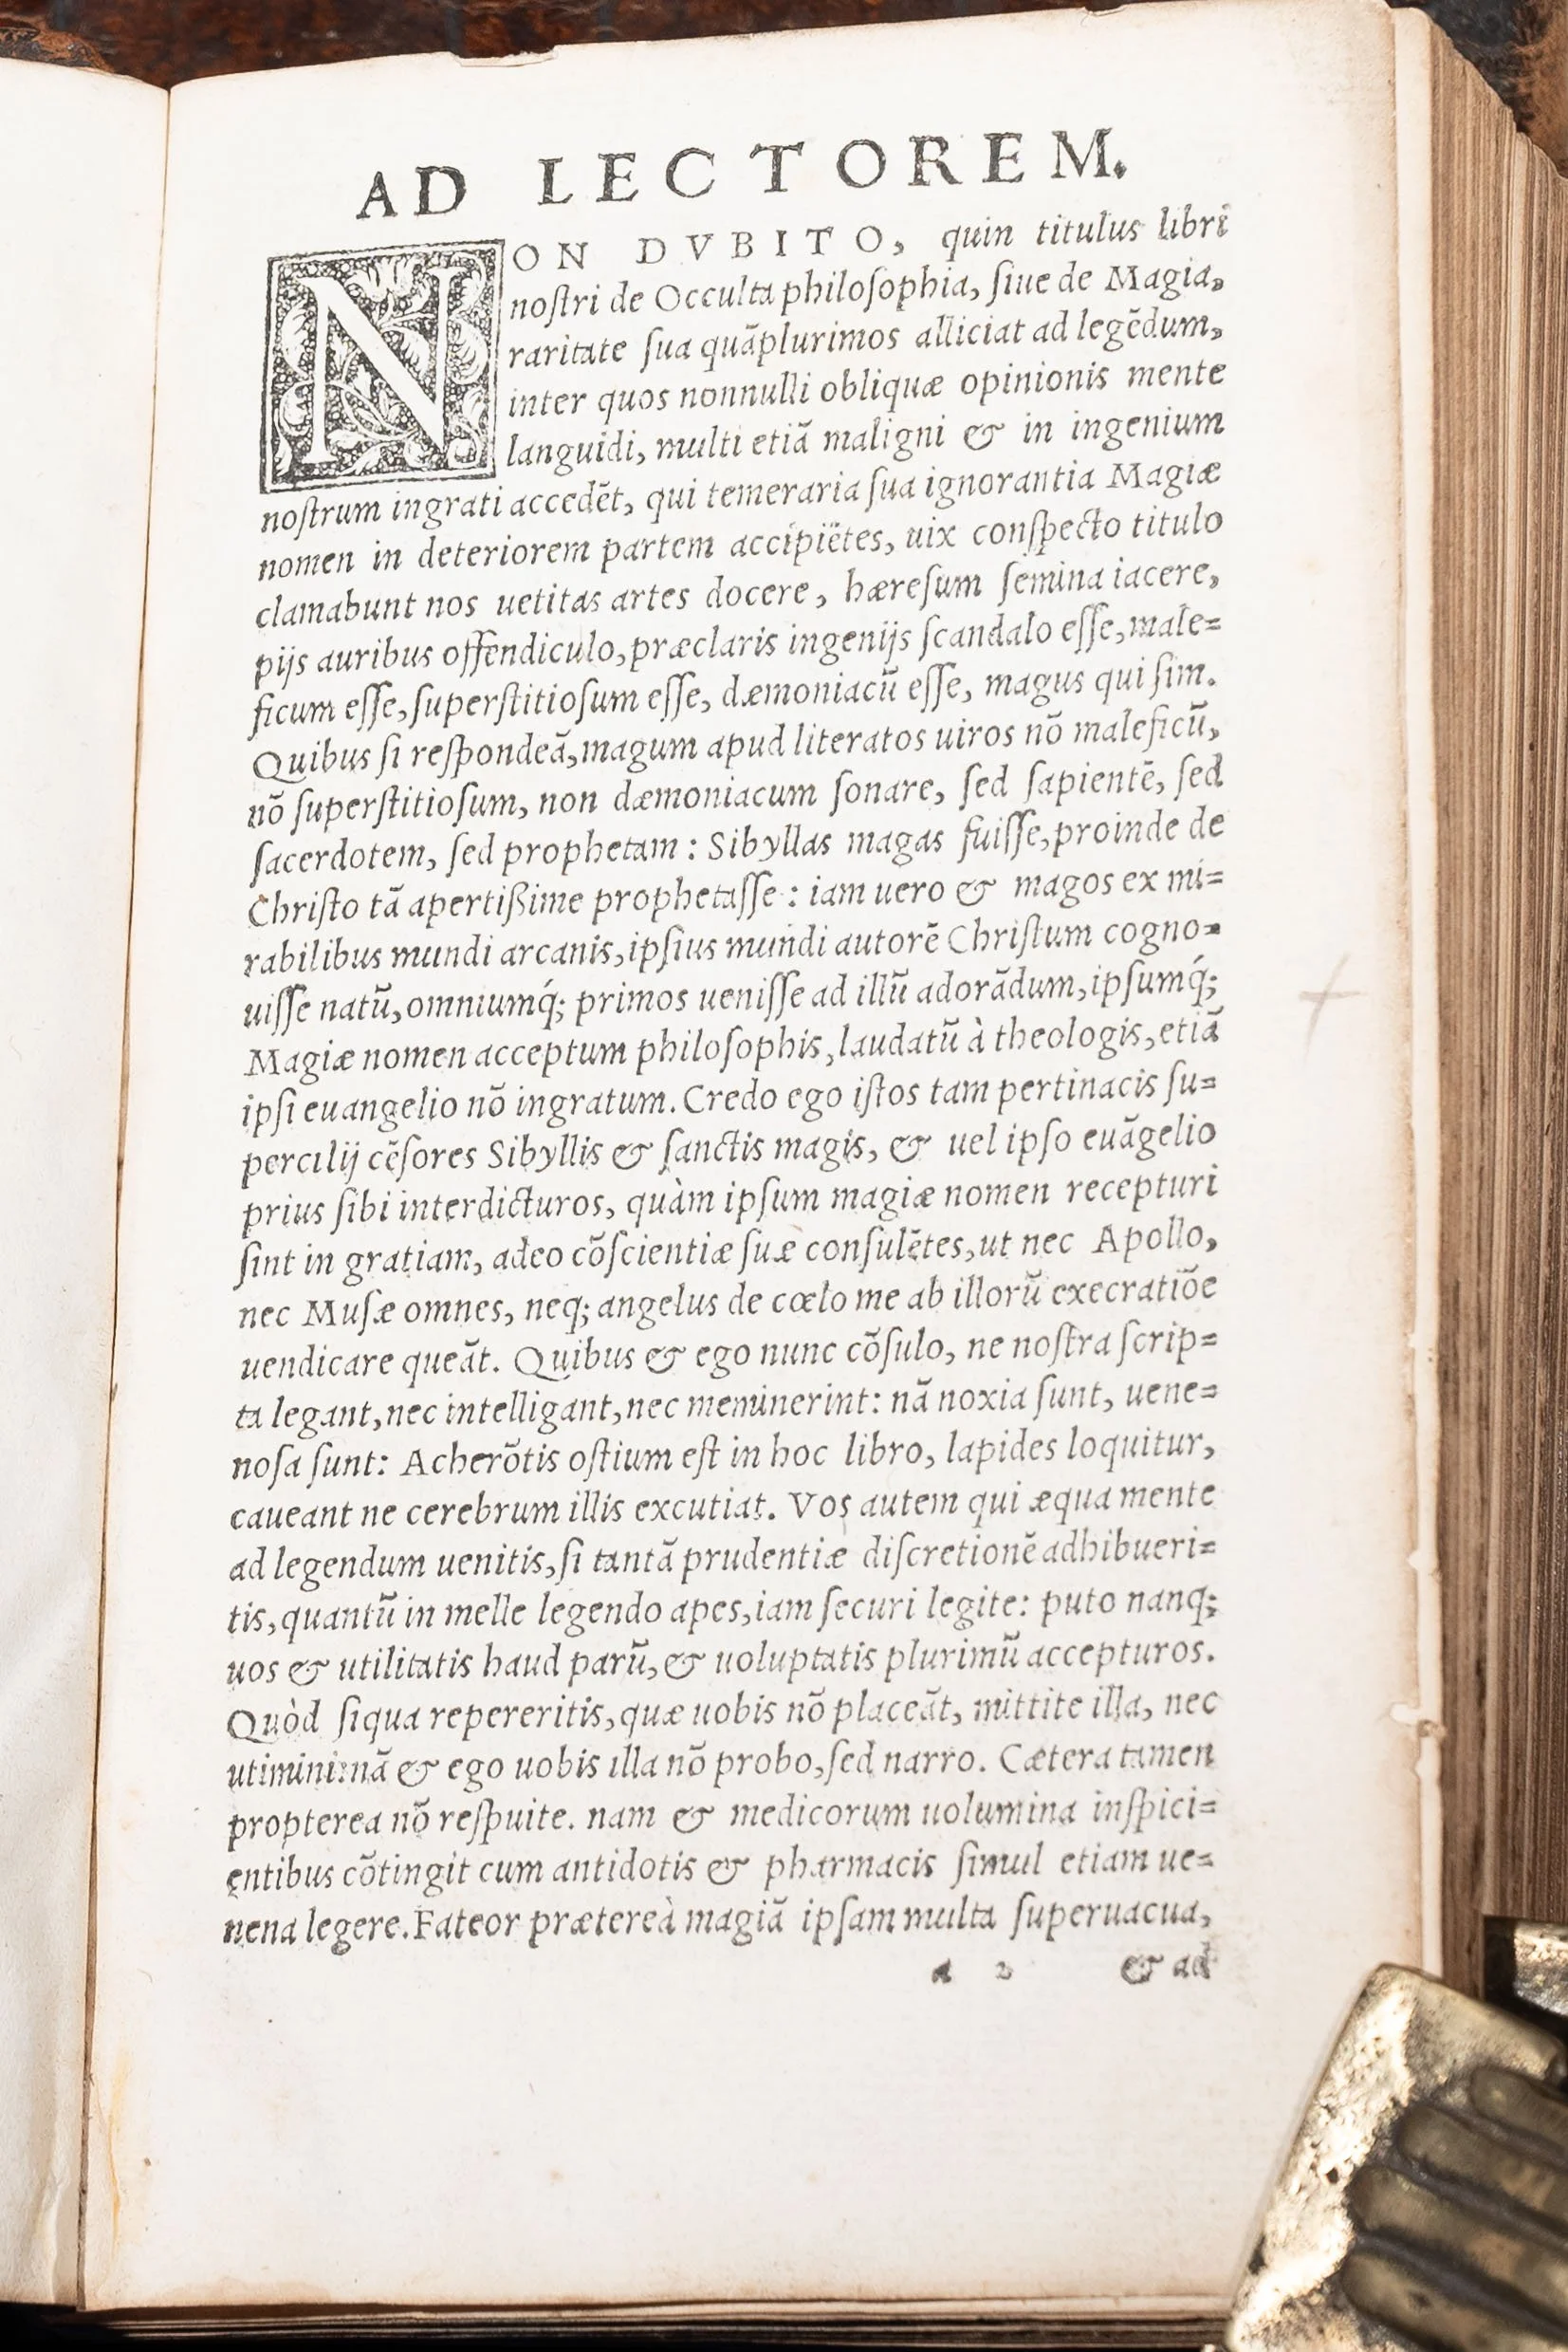 AD LECTOREM.
NON DVBITO, quin titulus libri
noſtri de Occulta philoſophia, ſiue de Magia,
raritate ſua quãplurimos alliciat ad legẽdum,
inter quos nonnulli obliquæ opinionis mente
languidi, multi etiã maligni & in ingenium
noſtrum ingrati accedẽt, qui temeraria ſua ignorantia Magiæ
nomen in deteriorem partem accipiẽtes, uix conſpecto titulo
clamabunt nos uetitas artes docere, hæreſum ſemina iacere,
pijs auribus offendiculo, præclaris ingenijs ſcandalo eſſe, male=
ficum eſſe, ſuperſtitioſum eſſe, dæmoniacũ eſſe, magus qui ſim.
Quibus ſi reſpondeã, magum apud literatos uiros nõ maleficũ,
nõ ſuperſtitioſum, non dæmoniacum ſonare, ſed ſapientẽ, ſed
ſacerdotem, ſed prophetam: Sibyllas magas fuiſſe, proinde de
Chriſto tã apertißime prophetaſſe: iam uero & magos ex mi=
rabilibus mundi arcanis, ipſius mundi autorẽ Chriſtum cogno=
uiſſe natũ, omniumq́; primos ueniſſe ad illũ adorãdum, ipſumq́;
Magiæ nomen acceptum philoſophis, laudatũ à theologis, etiã
ipſi euangelio nõ ingratum. Credo ego iſtos tam pertinacis ſu=
percilij cẽſores Sibyllis & ſanctis magis, & uel ipſo euãgelio
prius ſibi interdicturos, quàm ipſum magiæ nomen recepturi
ſint in gratiam, adeo cõſcientiæ ſuæ conſulẽtes, ut nec Apollo,
nec Muſæ omnes, neq; angelus de cœlo me ab illorũ execratiõe
uendicare queãt. Quibus & ego nunc cõſulo, ne noſtra ſcrip=
ta legant, nec intelligant, nec meminerint: nã noxia ſunt, uene=
noſa ſunt: Acherõtis oſtium eſt in hoc libro, lapides loquitur,
caueant ne cerebrum illis excutiat. Vos autem qui æqua mente
ad legendum uenitis, ſi tantã prudentiæ diſcretionẽ adhibueri=
tis, quantũ in melle legendo apes, iam ſecuri legite: puto nanq;
uos & utilitatis haud parũ, & uoluptatis plurimũ accepturos.
Quòd ſiqua repereritis, quæ uobis nõ placeãt, mittite illa, nec
utimini: nã & ego uobis illa nõ probo, ſed narro. Cætera tamen
propterea nõ reſpuite. nam & medicorum uolumina inſpici=
entibus cõtingit cum antidotis & pharmacis ſimul etiam ue=
nena legere. Fateor prætereà magiã ipſam multa ſuperuacua,
a 2 & ad